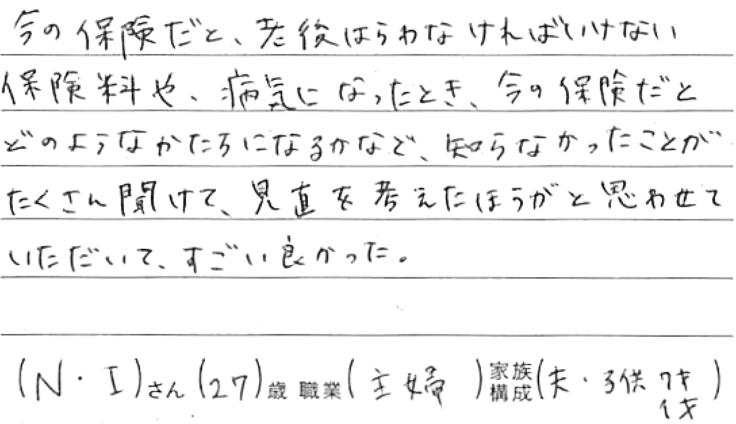 今の保険だと、老後はらわなければいけない
保険料や、病気になったとき、今の保険だと
どのようなかたちになるかなど、知らなかったことが
たくさん聞けて、見直を考えたほうがと思わせて
いただいて、すごい良かった。
(N・I)さん(27)歳 職業(主婦)家族構成(夫・子供 7才
1才)